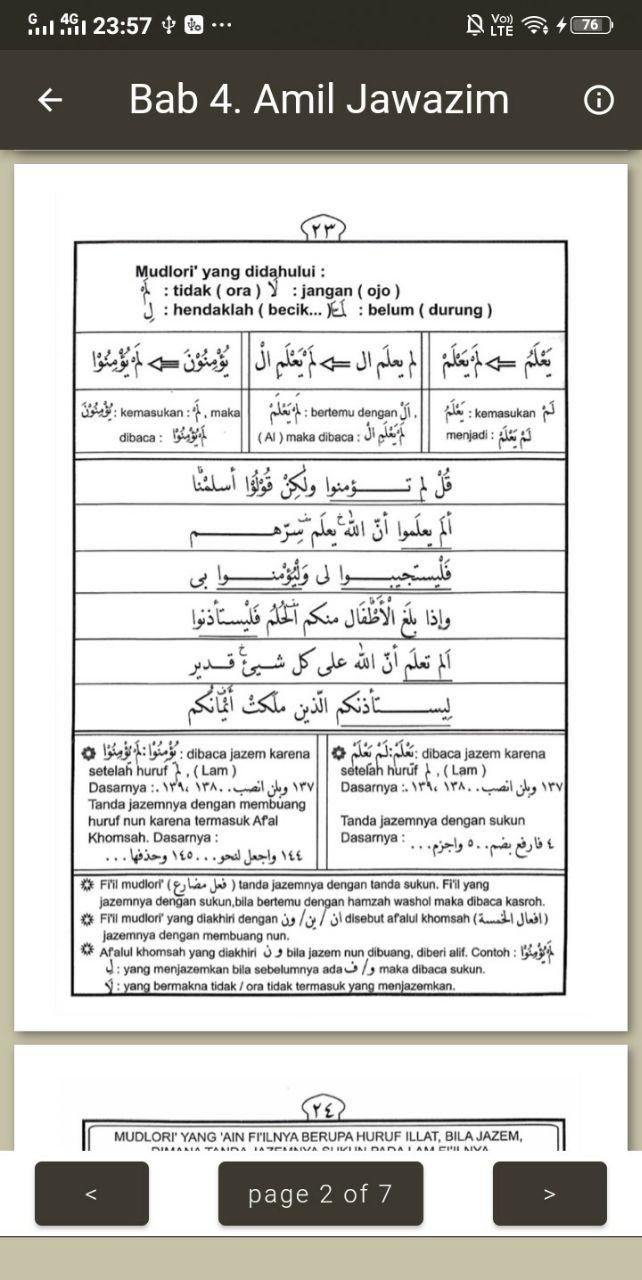 G 4G 23:57 ... Vo)) LTE 76
Bab 4. Amil Jawazim
٢٣
Mudlori' yang didahului :
لَمْ : tidak ( ora ) لَا : jangan ( ojo )
لِ : hendaklah ( becik... ) لَمَّا : belum ( durung )
يَعْلَمُ ⇐ لَمْ يَعْلَمْ
لم يعلم ال ⇐ لَمْ يَعْلَمِ الْ
يُؤْمِنُوْنَ ⇐ لَمْ يُؤْمِنُوْا
يَعْلَمُ : kemasukan لَمْ
menjadi : لَمْ يَعْلَمْ
لَمْ يَعْلَمْ : bertemu dengan اَلْ ,
( Al ) maka dibaca : لَمْ يَعْلَمِ الْ
يُؤْمِنُوْنَ : kemasukan : لَمْ , maka
dibaca : لَمْ يُؤْمِنُوْا
قُلْ لم تـــؤمنوا ولٰكِنْ قُوْلُوْا أسلمْنَا
ألم يعلَموا أنّ اللهَ يعلَم سِرّهـــم
فَلْيستجيبـــوا لى وَلْيُؤْمنـــوا بى
وإذا بلَغَ الْأَطْفَال منكم الْحُلُمَ فَلْيستأذنوا
ألم تعلَم أنّ الله على كل شـيئ قـدير
لِيســـتأذنكم الّذين ملَكتْ أَيْمَانُكم
يُؤْمِنُوْا:لَمْ يُؤْمِنُوْا : dibaca jazem karena
setelah huruf لم , ( Lam )
Dasarnya :. ١٣٧ وبلن انصب.. ١٣٨ ،١٣٩
Tanda jazemnya dengan membuang
huruf nun karena termasuk Af'al
Khomsah. Dasarnya :
١٤٤ واجعل لنحو... ١٤٥ وحذفها...
تَعْلَمْ:لَمْ تَعْلَمْ : dibaca jazem karena
setelah huruf لم , ( Lam )
Dasarnya :. ١٣٧ وبلن انصب.. ١٣٨ ،١٣٩
Tanda jazemnya dengan sukun
Dasarnya : ٤ فارفع بضم.. ٥ واجزم...
Fi'il mudlori' ( فعل مضارع ) tanda jazemnya dengan tanda sukun. Fi'il yang
jazemnya dengan sukun,bila bertemu dengan hamzah washol maka dibaca kasroh.
Fi'il mudlori' yang diakhiri dengan ان / ين/ ون disebut af'alul khomsah (افعال الخمسة)
jazemnya dengan membuang nun.
Af'alul khomsah yang diakhiri و ن bila jazem nun dibuang, diberi alif. Contoh : لَمْ يُؤْمِنُوْا
لِ : yang menjazemkan bila sebelumnya ada و/ ف maka dibaca sukun.
لَا : yang bermakna tidak / ora tidak termasuk yang menjazemkan.
٢٤
MUDLORI' YANG 'AIN FI'ILNYA BERUPA HURUF ILLAT, BILA JAZEM,
DIMANA TANDA JAZEMNYA SUKUN PADA LAM FI'ILNYA
<
page 2 of 7
>